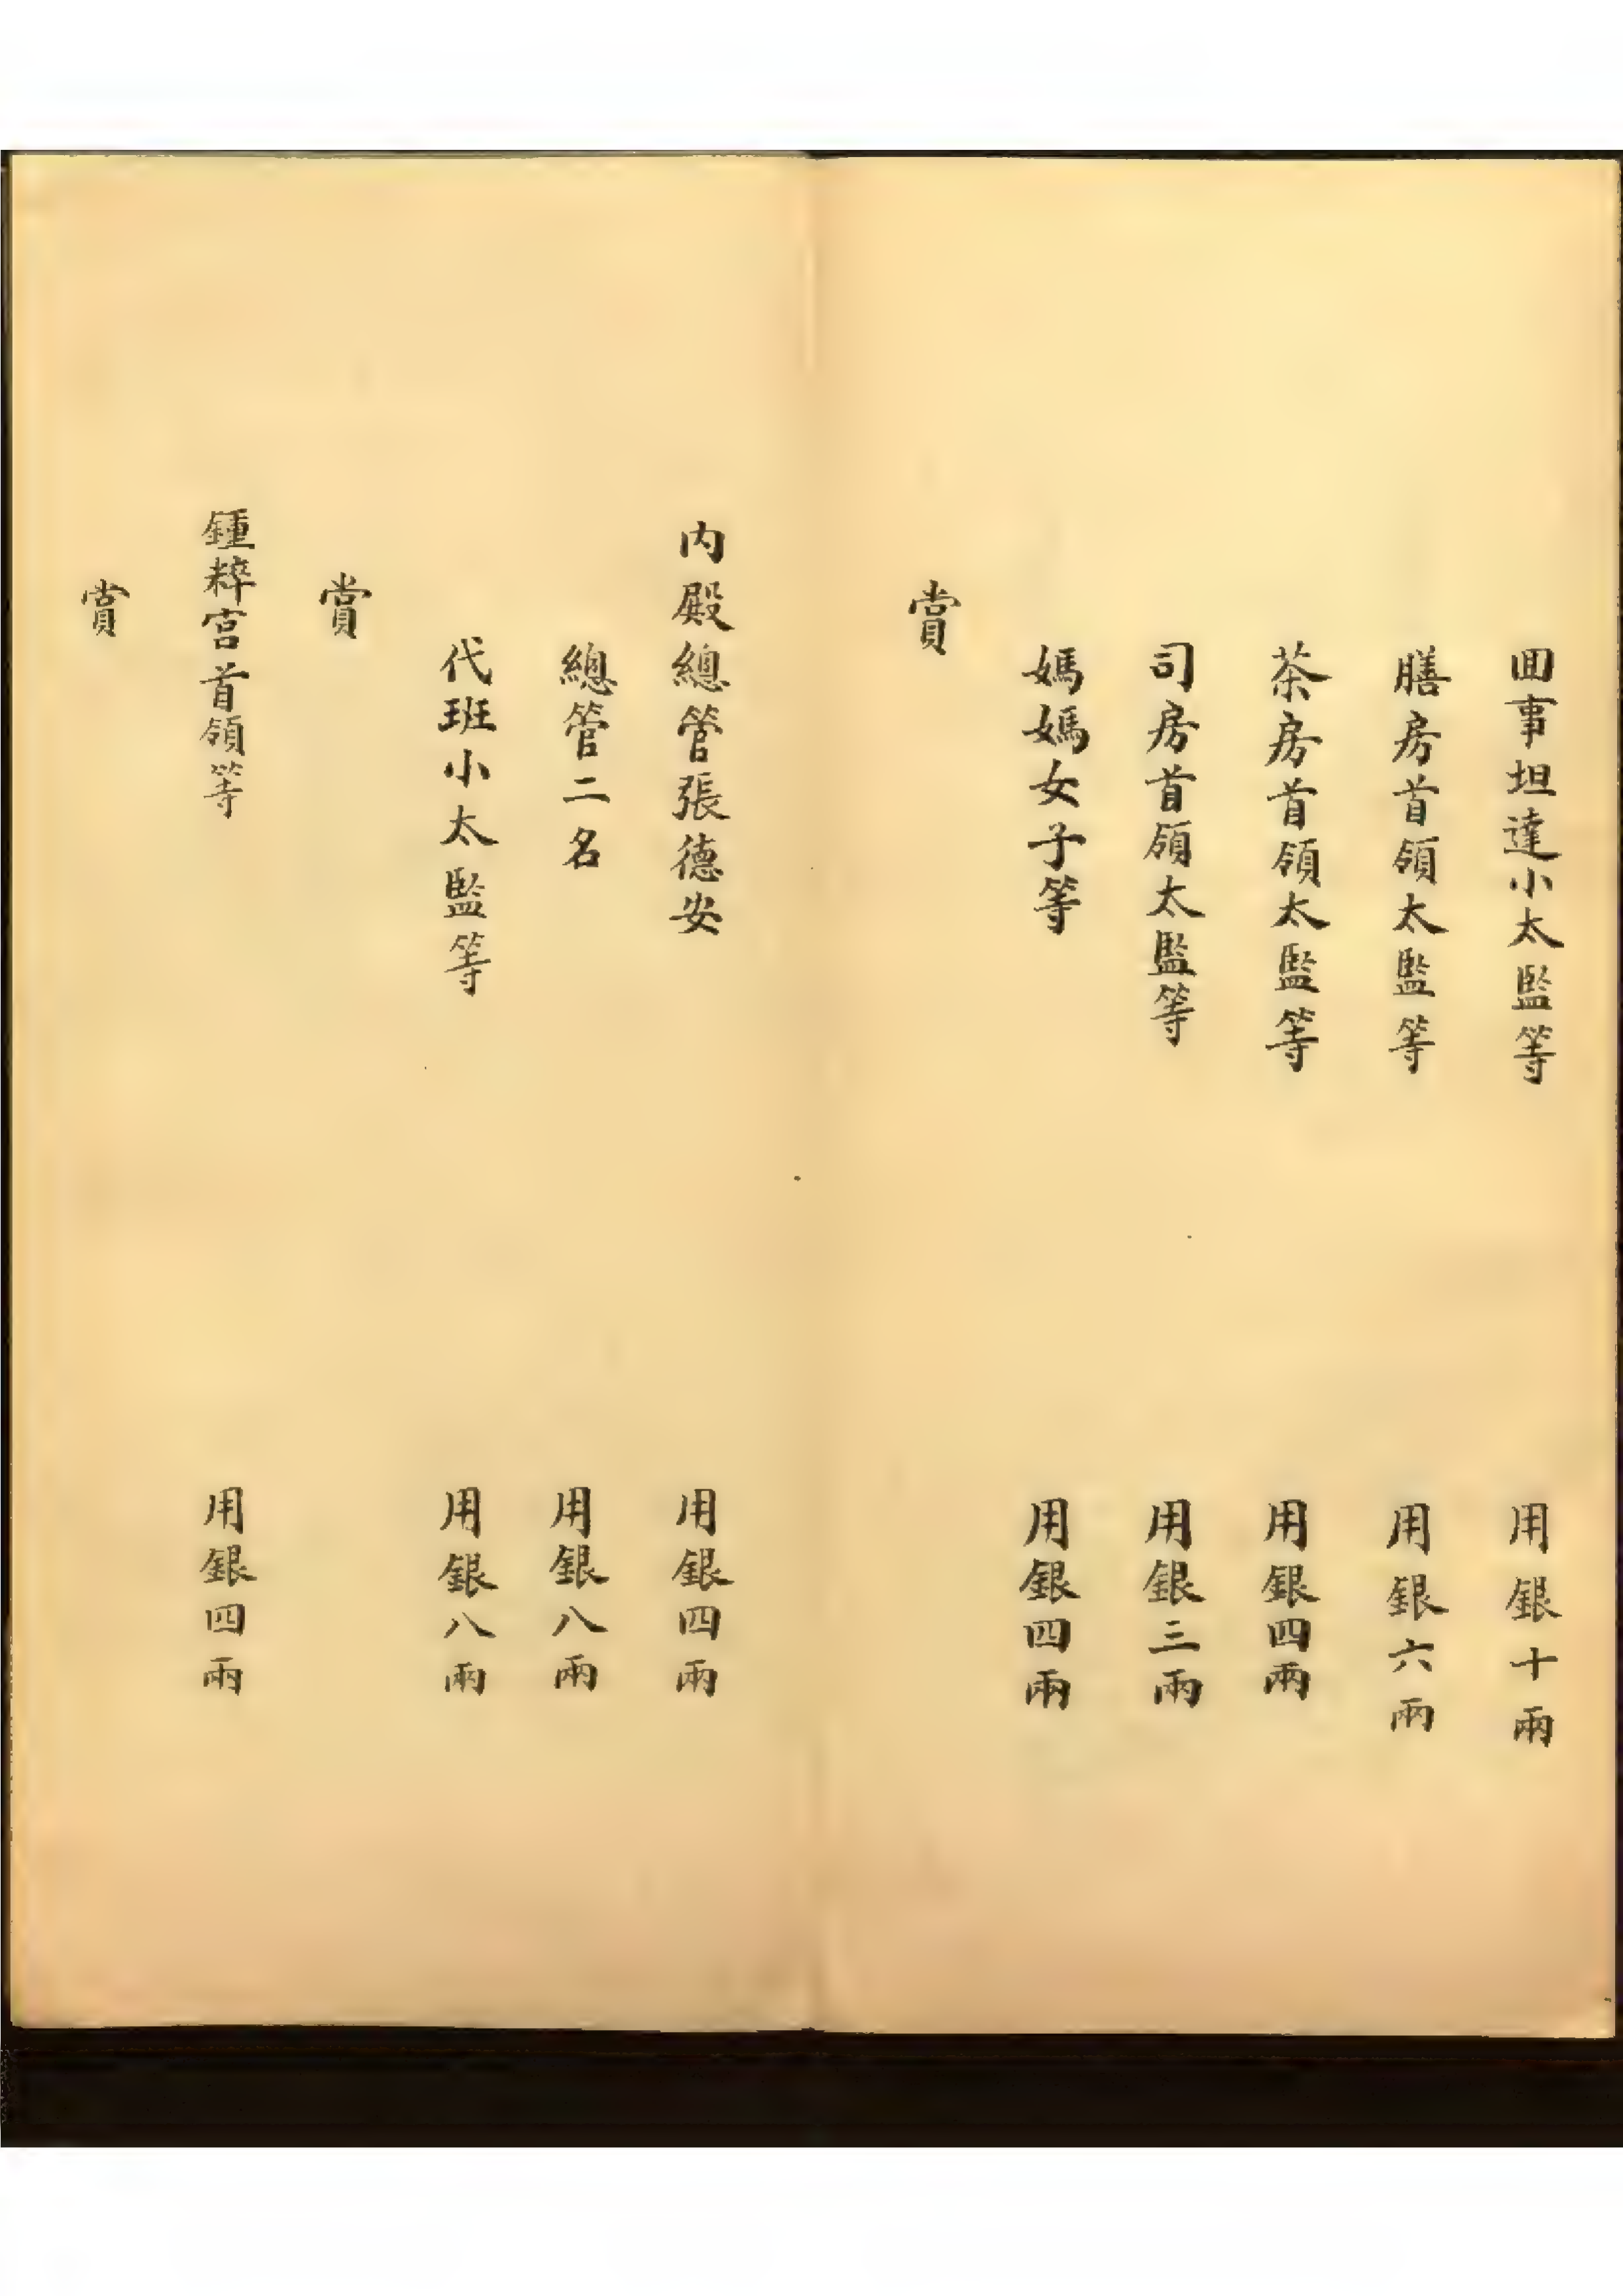 囬事坦達小太監等 用銀十兩
膳房首領太監等 用銀六兩
茶房首領太監等 用銀四兩
司房首領太監等 用銀三兩
媽媽女子等 用銀四兩
賞
内殿總管張德安 用銀四兩
總管二名 用銀八兩
代班小太監等 用銀八兩
賞
鍾粹宮首領等 用銀四兩
賞